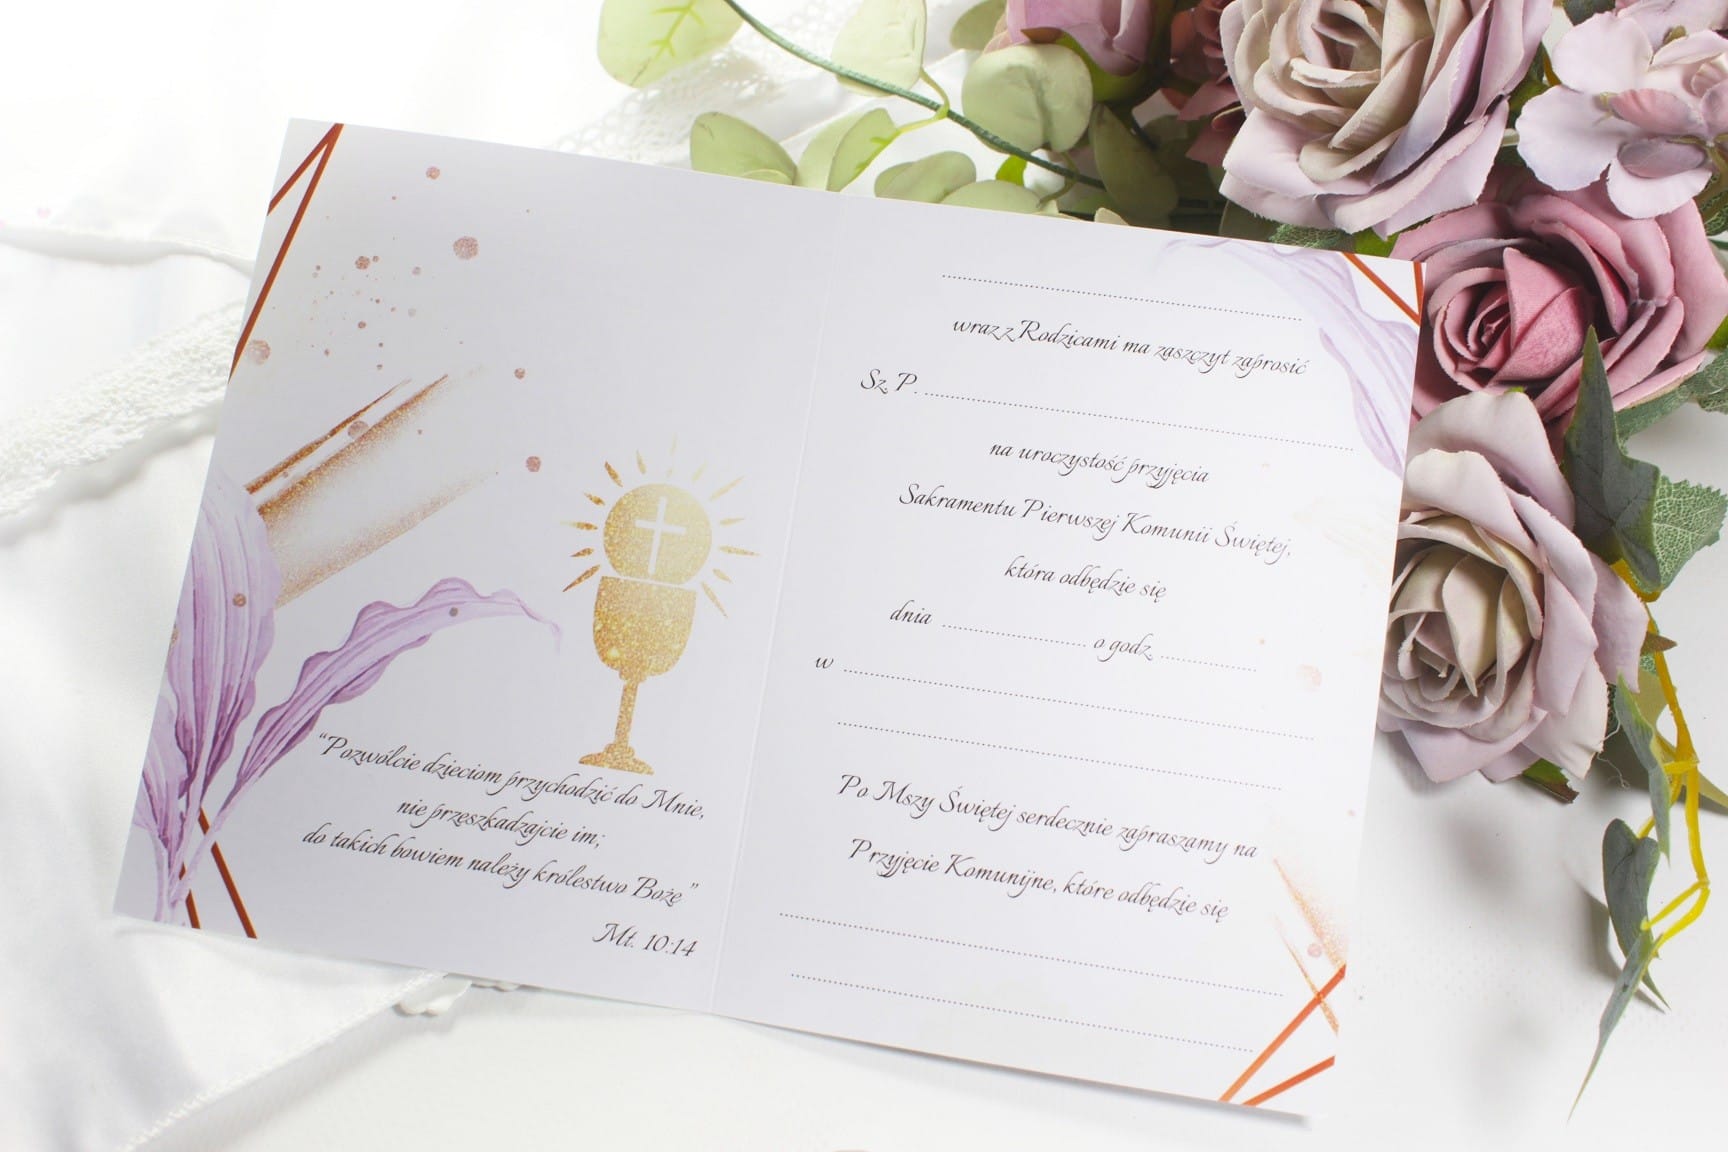 "Pozwólcie dzieciom przychodzić do Mnie,
nie przeszkadzajcie im;
do takich bowiem należy królestwo Boże"
Mt. 10:14
wraz z Rodzicami ma zaszczyt zaprosić
Sz. P.
na uroczystość przyjęcia
Sakramentu Pierwszej Komunii Świętej,
która odbędzie się
dnia o godz.
w
Po Mszy Świętej serdecznie zapraszamy na
Przyjęcie Komunijne, które odbędzie się